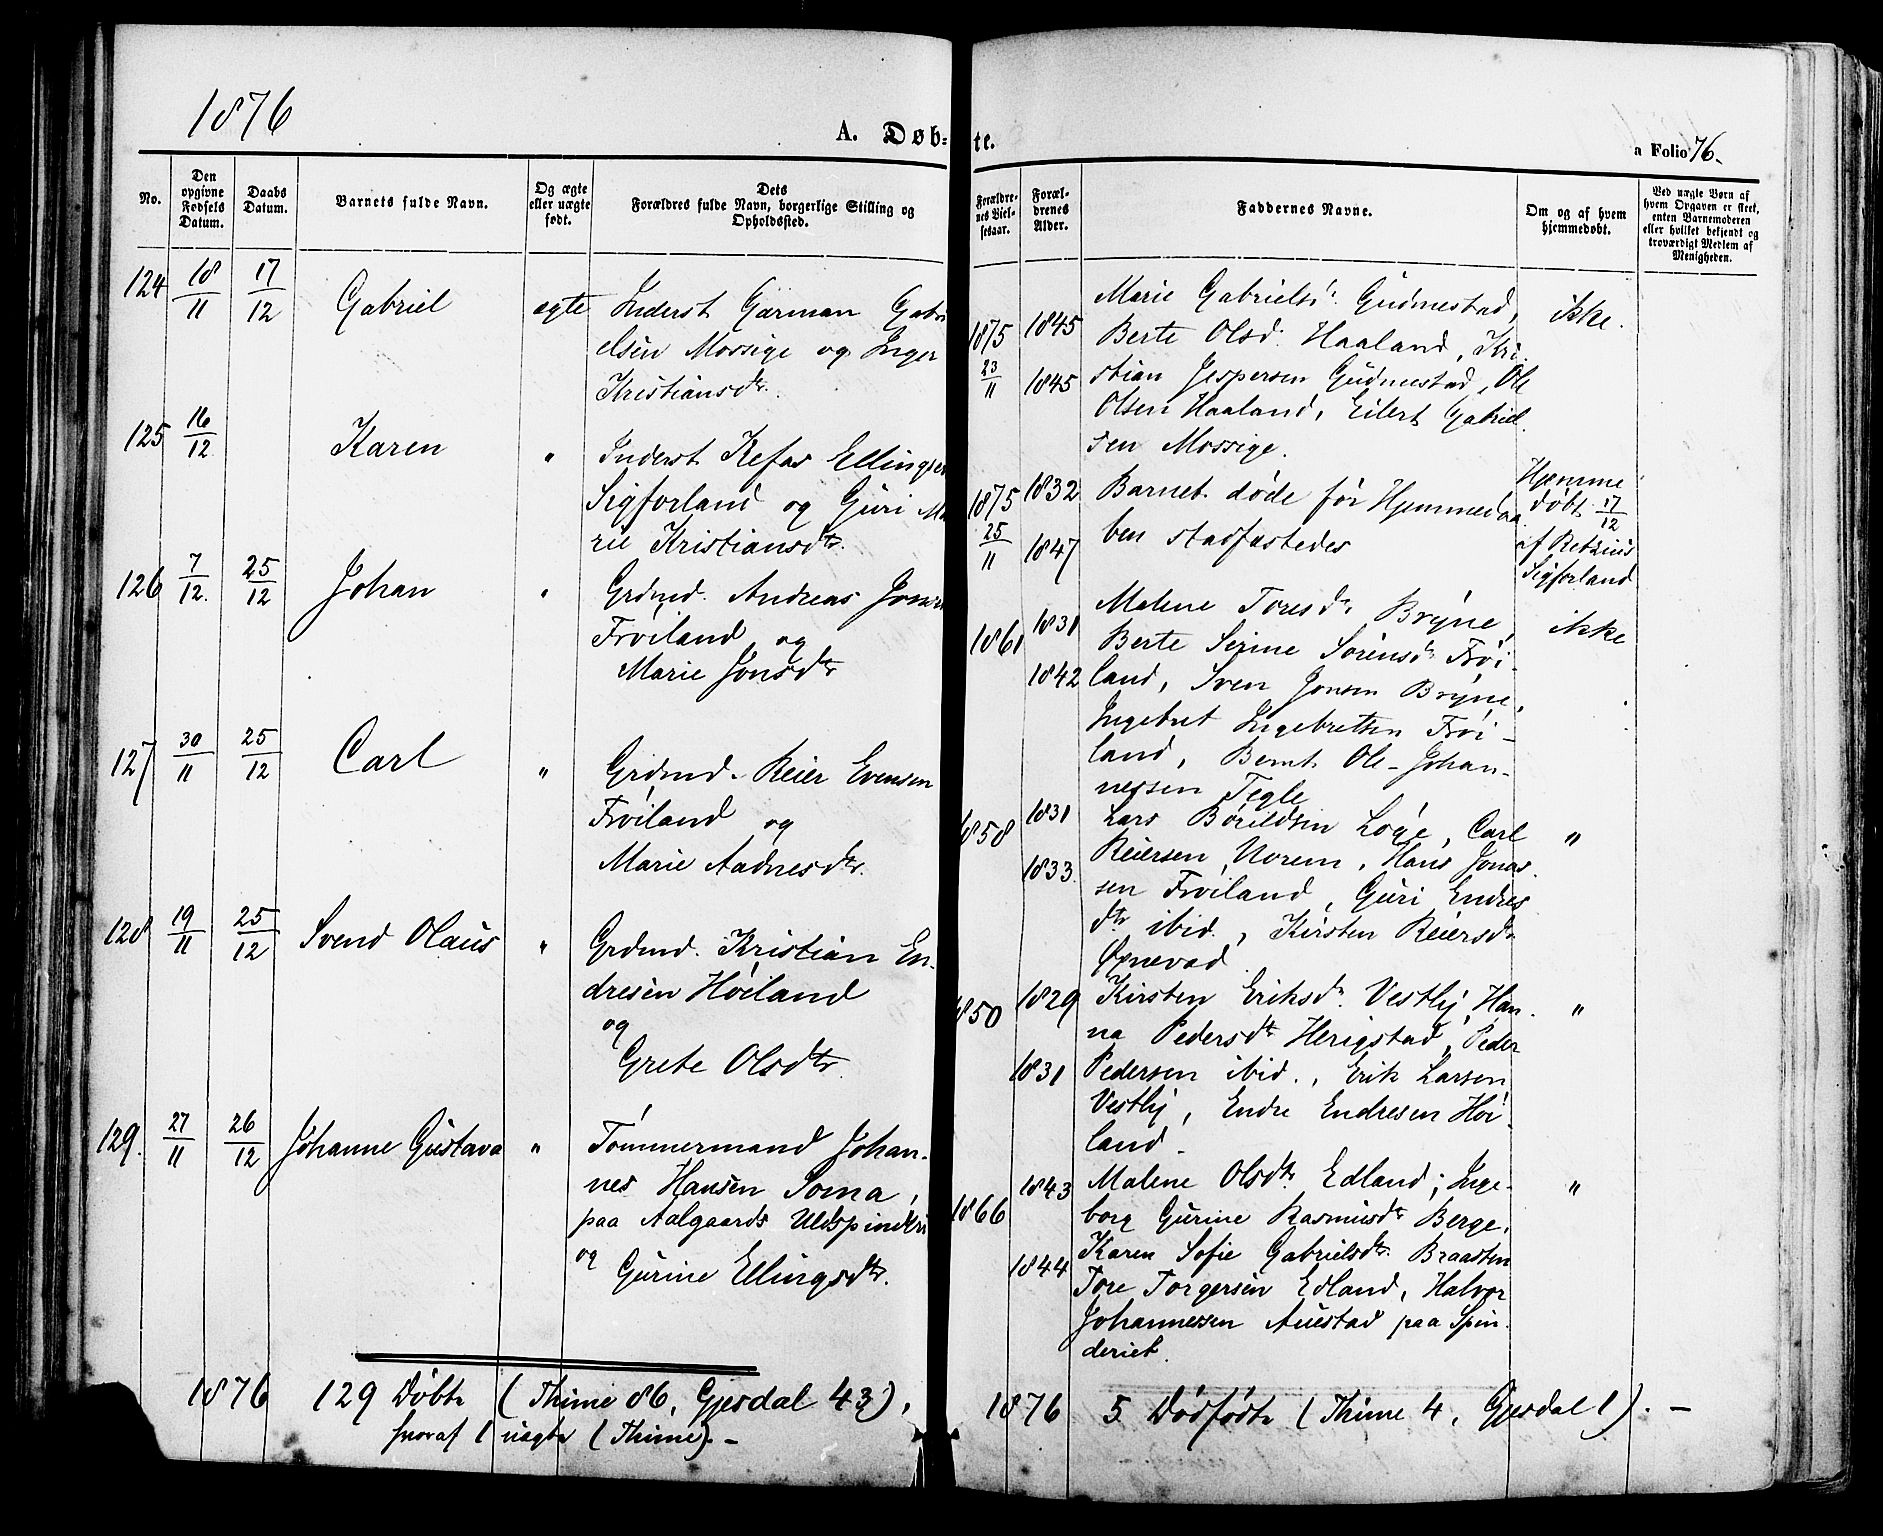 1876
A. Døb-
te.
a Folio 76.
No.
Den opgivne Fødsels Datum.
Daabs Datum.
Barnets fulde Navn.
Og ægte eller uægte født.
Dets Forældres fulde Navn, borgerlige Stilling og Opholdssted.
Forældrenes Vielsesaar.
Forældrenes Alder.
Faddernes Navne.
Om og af hvem hjemmedøbt.
Ved uægte Børn af hvem Opgaven er skeet, enten Barnemoderen eller hvilket bekjendt og troværdigt Medlem af Menigheden.
124 18/11 17/12 Gabriel ægte
Inderst Garman Gabri
elsen Mossige og Inger
Kristiansdtr.
1875 23/11
1845
1845
Marie Gabrielsd. Gudmestad,
Berte Olsd. Haaland, Kri-
stian Jespersen Gudmestad, Ole
Olsen Haaland, Eilert Gabriel-
sen Mossige.
ikke.
125 16/12 Karen "
Inderst Kefas Ellingsen
Sigforland og Guri Ma
rie Kristiansdtr.
1875 25/11
1832
1847
Barnet døde før Hjemmedaa
ben stadfæstedes
Hjemme
døbt 17/12
af Retzius
Sigforland
126 7/12. 25/12 Johan "
Grdmd. Andreas Jonse
Frøiland og
Marie Jonsdtr
1861
1831
1842
Malene Toresdr Bryne,
Berte Serine Sørensdr Frøi-
land, Sven Jonsen Bryne,
Ingebret Ingebretsen Frøi-
land, Bernt Ole-Johan-
nessen Tegle
ikke
127 30/11 25/12 Carl "
Grdmd. Reier Evensen
Frøiland og
Marie Aadnesdtr.
1858
1831
1833.
Lars Børildsen Løge, Carl
Reiersen Norem, Hans Jonas-
sen Frøiland, Guri Endres
dtr ibid., Kirsten Reiersdr
Øgnevad
"
128 19/11 25/12 Svend Olaus "
Grdmd. Kristian En-
dresen Høiland
og
Grete Olsdtr.
1850
1829
1831
Kirsten Eriksdr. Vestly, Han-
na Pedersdtr Herigstad, Peder
Pedersen ibid., Erik Larsen
Vestly, Endre Endresen Høi-
land.
"
129. 27/11 26/12 Johanne Gustava "
Tømmermand Johan-
nes Hansen Soma,
paa Aalgaards Uldspinderi
og
Gurine Ellingsdtr.
1866
1843
1844
Malene Olsdtr. Edland; Inge-
borg Gurine Rasmusdtr Berge,
Karen Sofie Gabrielsdtr. Braasten
Tore Torgersen Edland, Halvor
Johannessen Auestad paa Spin-
deriet.
"
1876 129 Døbte (Thime 86, Gjesdal 43),
hvoraf 1 uægte (Thime). –
1876 5 Dødfødte (Thime 4, Gjesdal 1). –